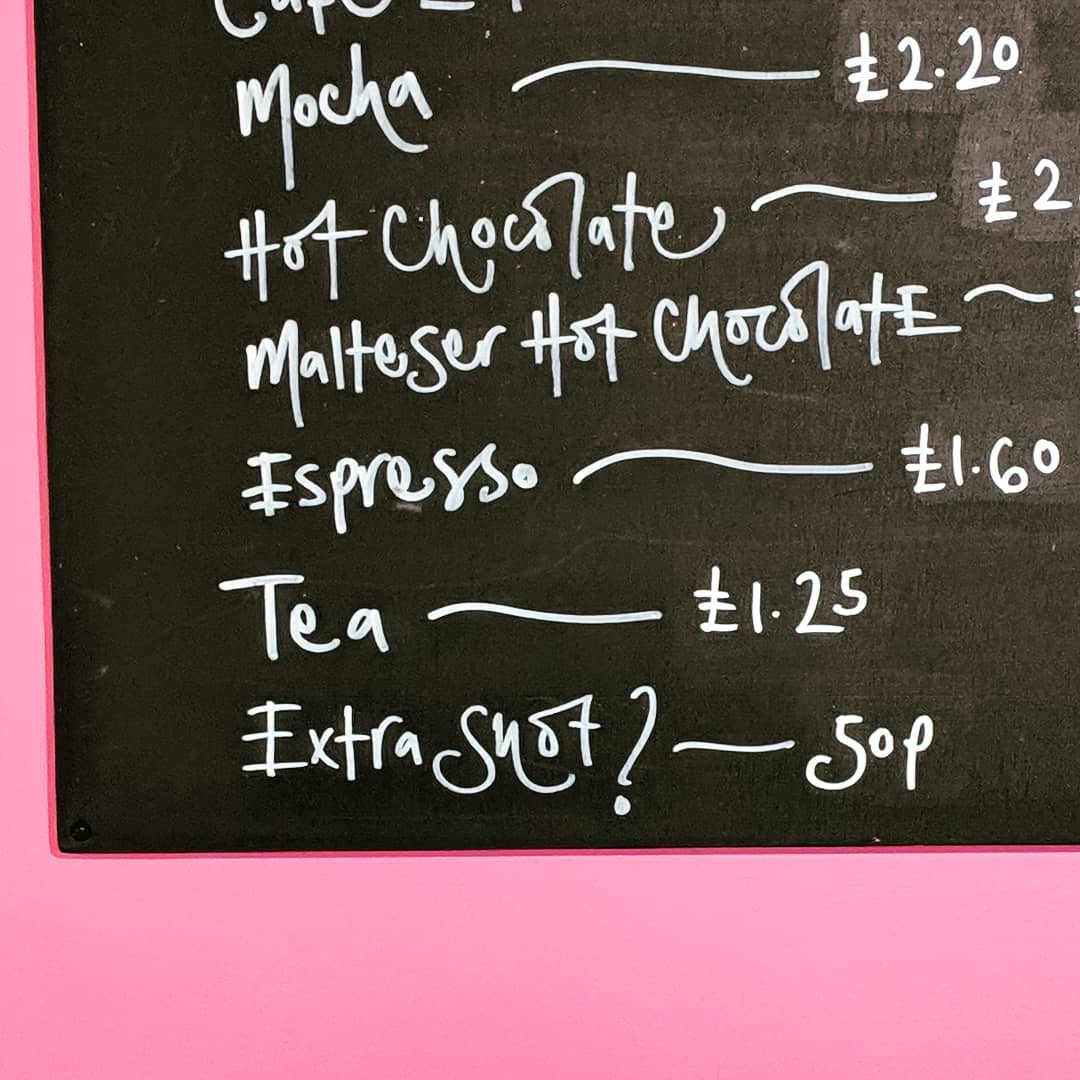 Mocha £2.20
Hot Chocolate £2
Malteser Hot Chocolate
Espresso £1.60
Tea £1.25
Extra Shot? 50p